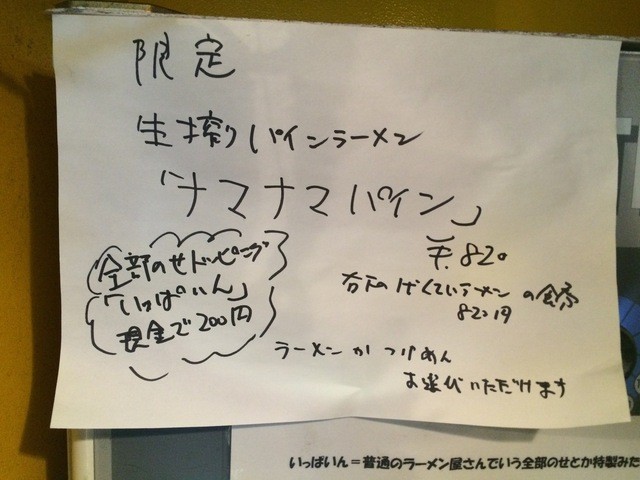 限定
生搾りパインラーメン
「ナマナマパイン」
¥820
全部のせトッピング
「いっぱいん」
現金で200円
右下のげんていラーメンの食券
820円
ラーメンかつけめん
お選びいただけます
いっぱいん=普通のラーメン屋さんでいう全部のせとか特製みた